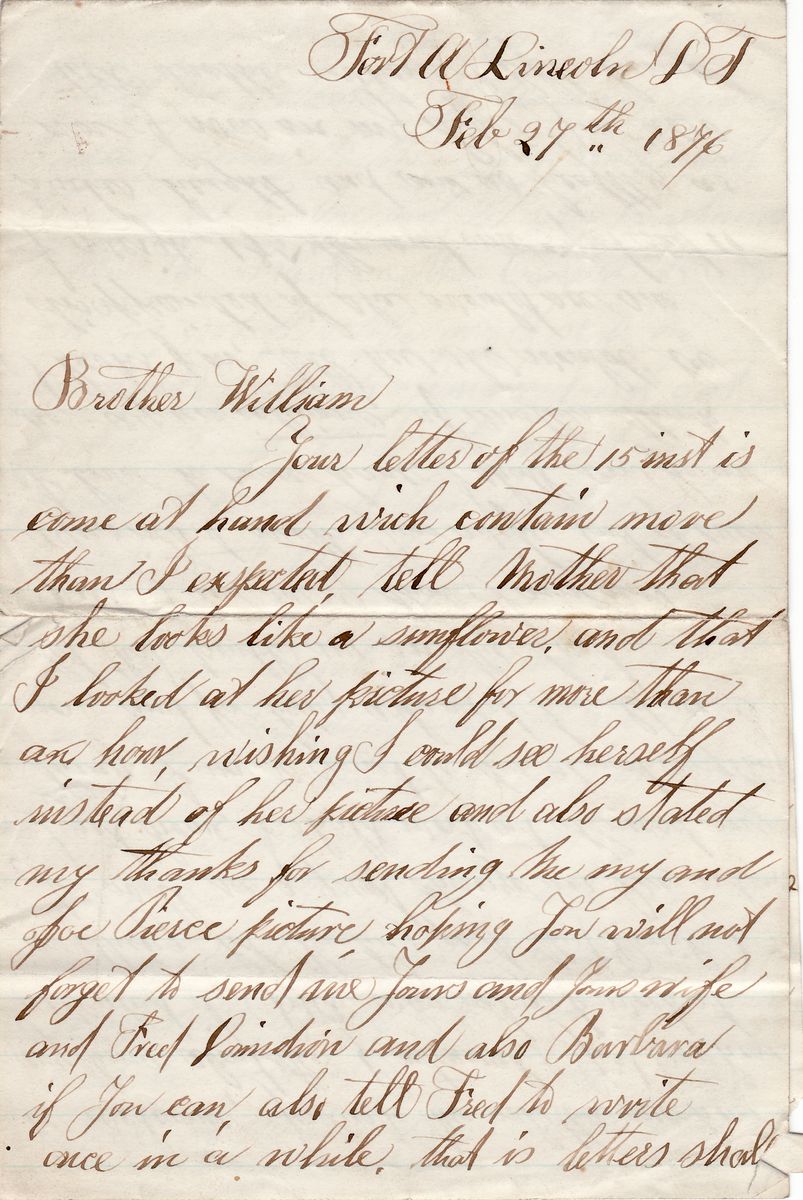 Fort A Lincoln D T
Feb 27th 1876
Brother William
Your letter of the 15 inst is
come at hand wich contain more
than I expected, tell Mother that
she looks like a sunflower, and that
I looked at her picture for more than
an hour, wishing I could see herself
instead of her picture and also stated
my thanks for sending me my and
Joe Pierce picture hoping You will not
forget to send me Yours and Yours wife
and Fred and also Barbara
if You can, also tell Fred to write
once in a while, that is letters shall
2